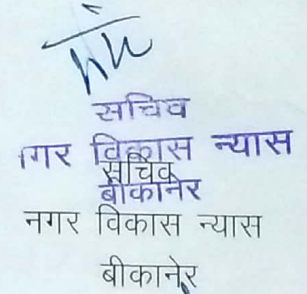 सचिव
गर विकास न्यास
सचिव
बीकानेर
नगर विकास न्यास
बीकानेर